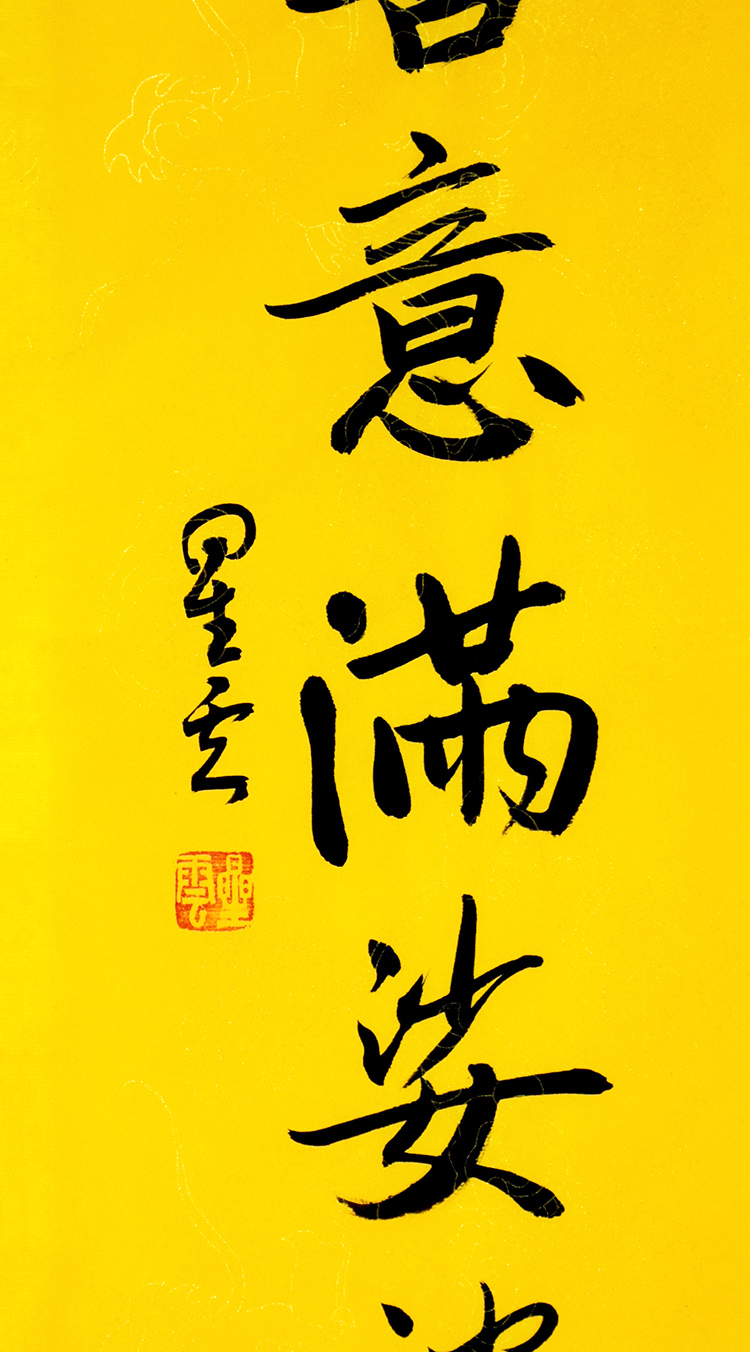 意滿娑
星云
星雲